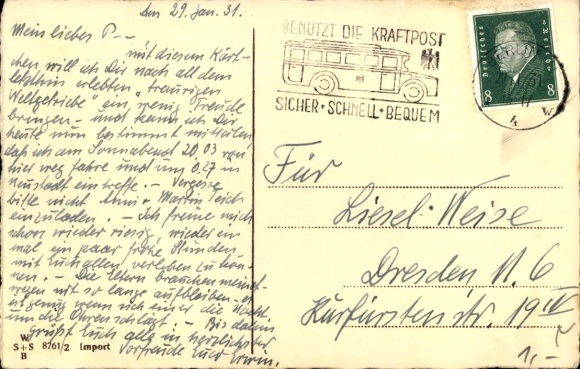 den 29. Jan. 31.
Mein liebes P--
mit diesem Kärt-
chen will ich Dir nach all dem
letzthin erlebten "traurigen
Weltgetriebe" ein wenig Freude
bringen - und kann ich Dir
heute nun bestimmt mitteilen
daß ich am Sonnabend 20.03 von
hier weg fahre und um 0.27 in
Neustadt eintreffe. - Vergesse
bitte nicht Änni + Martin Teich
einzuladen. - Ich freue mich
schon wieder riesig, wieder ein
mal ein paar frohe Stunden
mit Euch allen, verleben zu kön-
nen. - Die Eltern brauchen meinet-
wegen nit so lange aufbleiben,
genug wenn sich einer die Nacht
um die Ohren schlägt. - Bis dahin
Grüßt Euch alle in herzlichster
Vorfreude Euer Erwin.
W
S+S 8761/2 Import
B
BENUTZT DIE KRAFTPOST
SICHER + SCHNELL + BEQUEM
Deutsches Reich
8 8
4 w
Für
Liesel Weise
Dresden N. 6
Kurfürstenstr. 19 IV
1,-